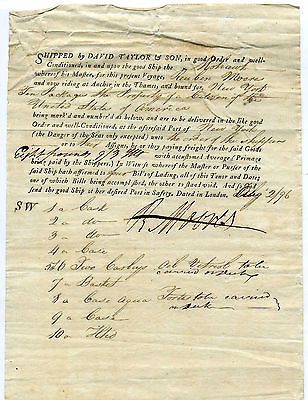 SHIPPED by DAVID TAYLOR & SON, in good Order and well-
Conditioned, in and upon the good Ship the Mohawk
whereof his Master, for this present Voyage, Reuben Moore
and now riding at Anchor in the Thames, and bound for New York
Ten Packages the Property of a Citizen of the
United States of America
being mark'd and number'd as below, and are to be delivered in the like good
Order and well-Conditioned, at the aforesaid Port of New York
(the Danger of the Seas only excepted) unto the order of the shippers
or to their Assigns paying Freight for the said Goods
with accustomed Average (Primage
being paid by the Shippers): In Witness whereof the Master or Purser of the
said Ship hath affirmed to four Bills of Lading, all of this Tenor and Date;
one of which Bills being accomplished, the other to stand void. And so God
send the good Ship at her desired Port in Safety. Dated in London, 96
SW 1 a Cask
2 a do
3 a do
4 a Case
5 & 6 Two Carboys Oil Vitriol to be
carried on deck
7 a Basket
8 a Case Aqua Fortis to be carried
on deck
9 a Case
10 a